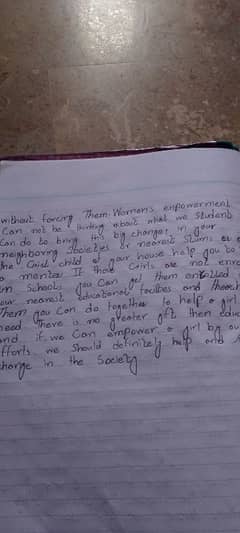 without forcing Them. Women's empowerment
Can not be thinking about what we Student
Can do to bring the big changes in your
neighboring Societies or nearest Slums or
the Girl child of your house help you to
a mentor If those Girls are not enro
in School. You Can get them enrolled
our nearest educational facilities and
Them you Can do together to help a girl
need There is no greater gift then educ
and if we Can empower a girl by ou
fforts we should definitely help and
change in the Society